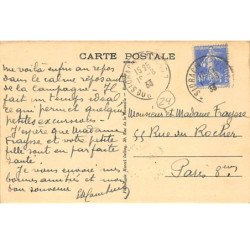 CARTE POSTALE
me voilà enfin au repos
dans le calme reposant
de la campagne - Il
fait un temps idéal
ce qui permet quelques
petites excursions -
J'espère que Madame
Fraysse et votre petite
fille sont en parfaite
santé -
Je vous envoie mes
bonnes amitiés et mon
bon souvenir
29
Monsieur et Madame Fraysse
55 Rue du Rocher
Paris 8